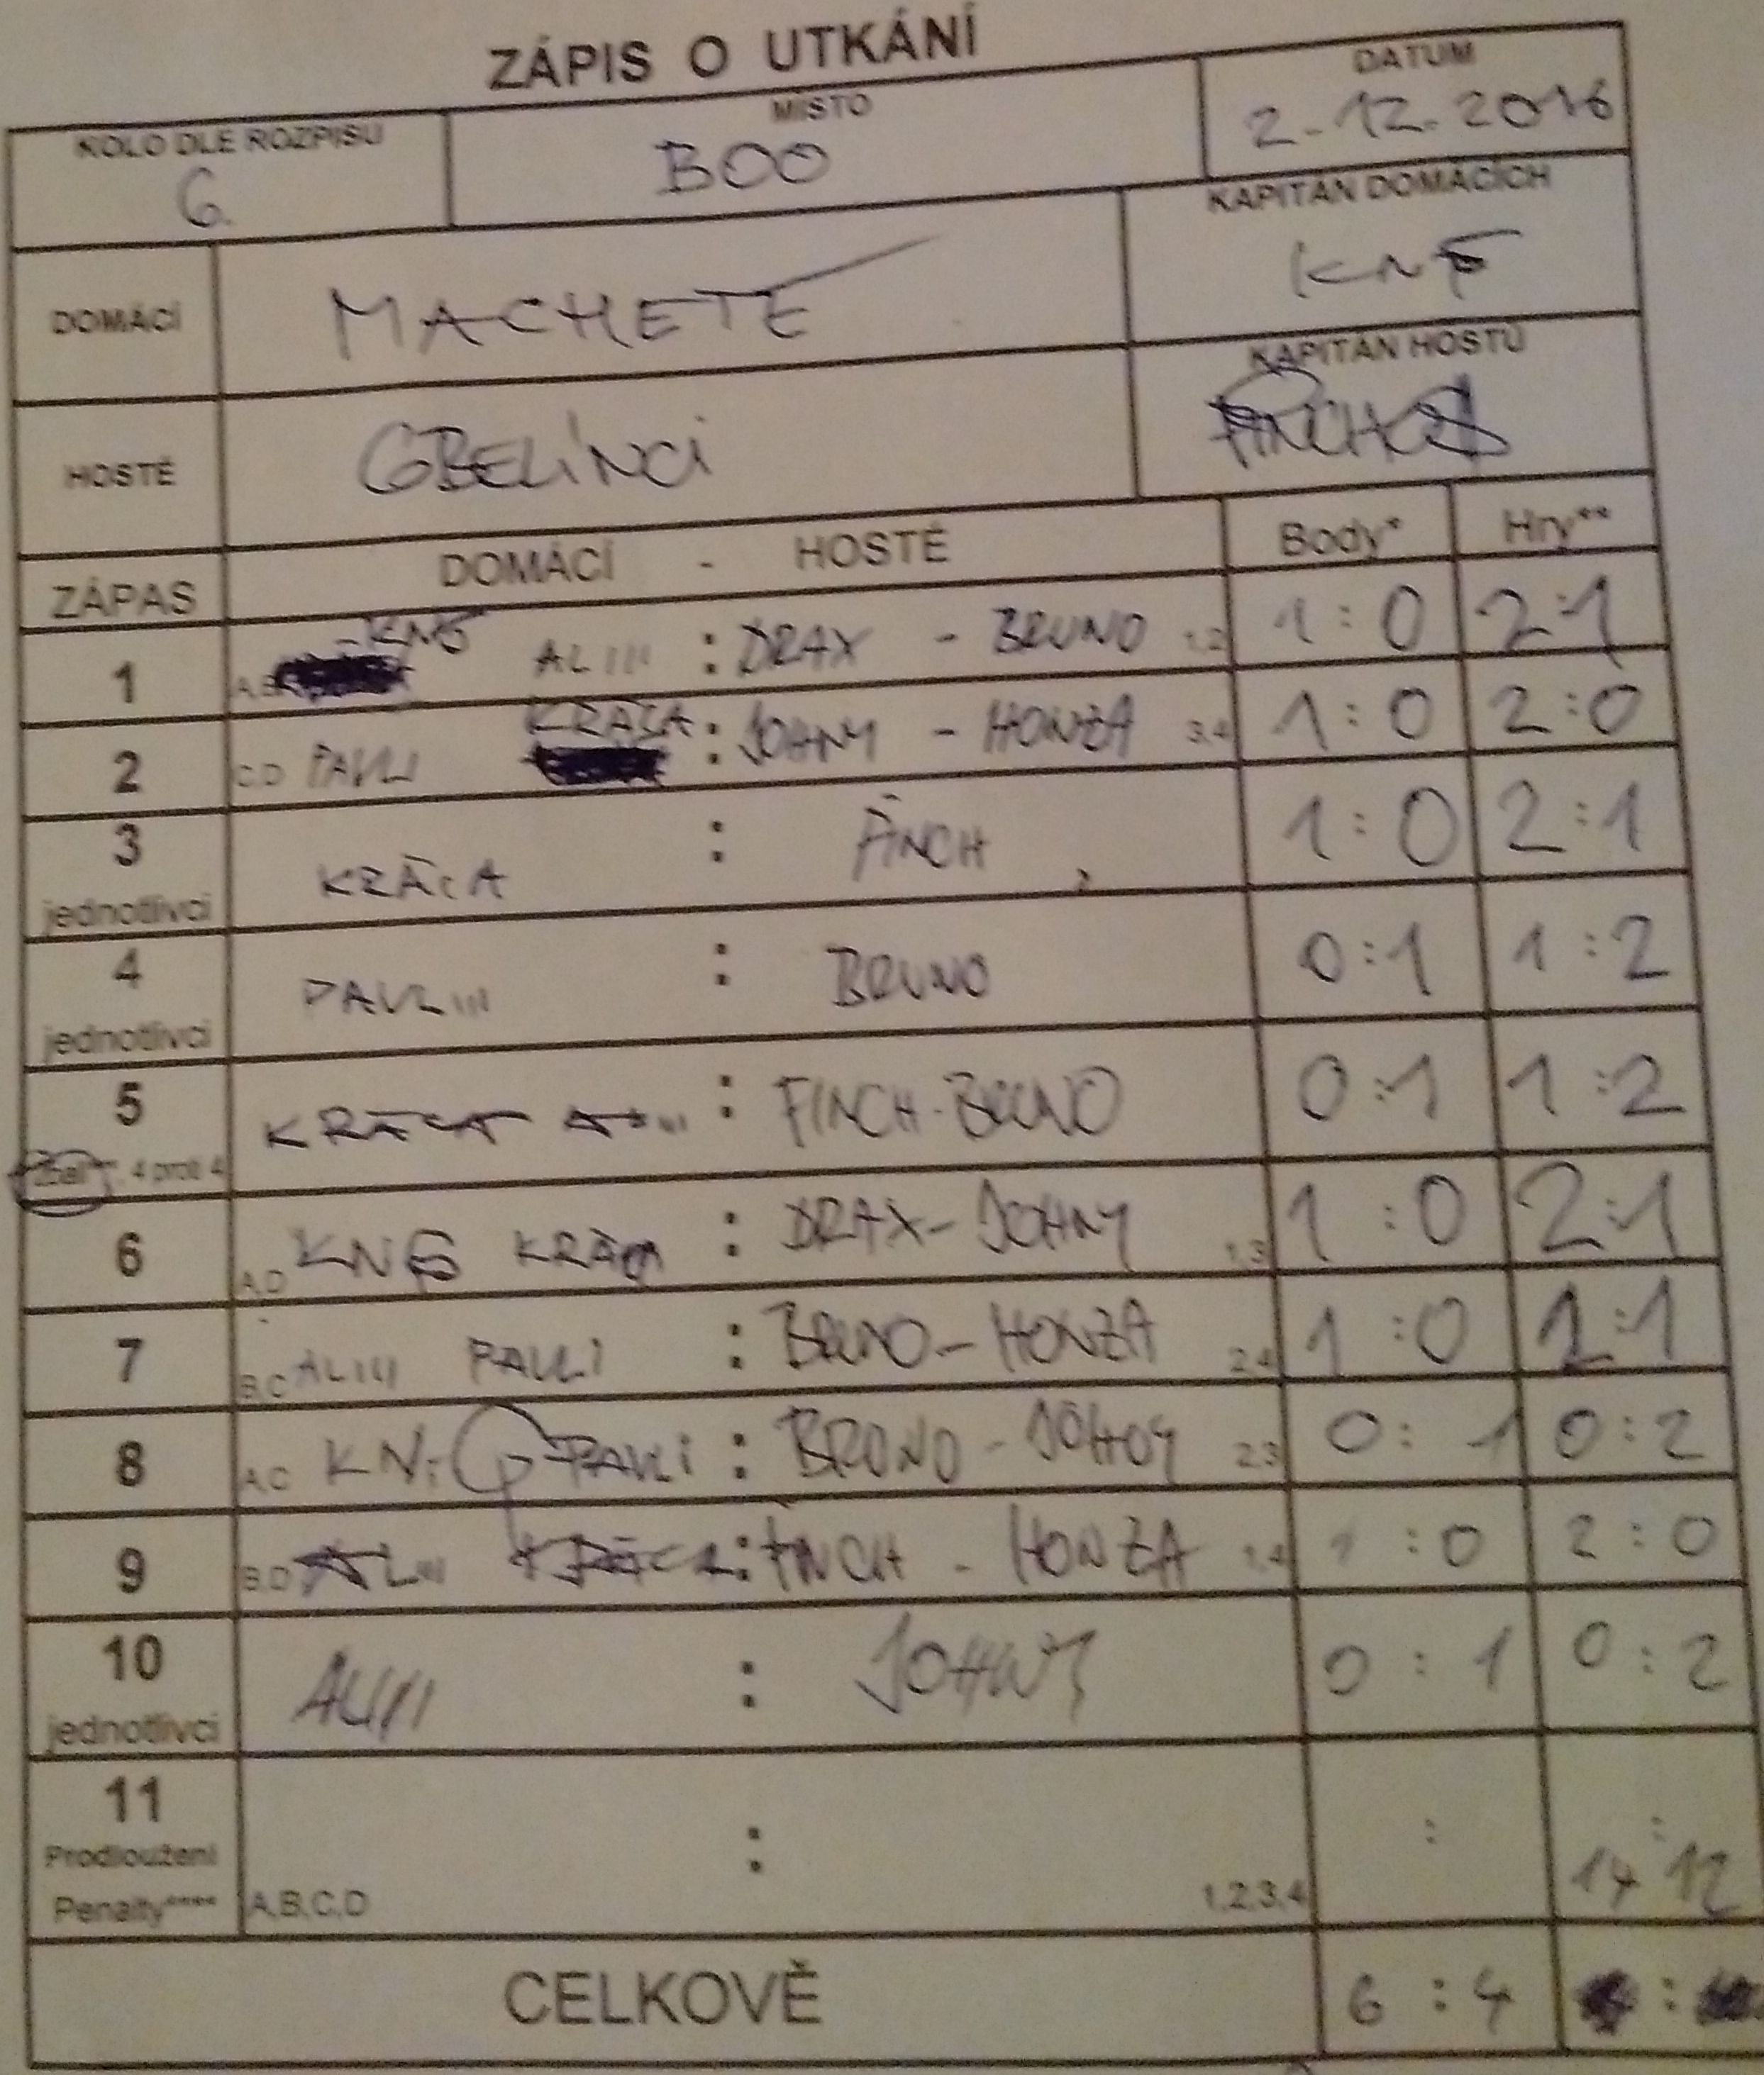 ZÁPIS O UTKÁNÍ
KOLO DLE ROZPISU MÍSTO DATUM
6. BOO 2.12.2016
DOMÁCÍ MACHETE KAPITÁN DOMÁCÍCH
HOSTÉ GBELÍNCI KAPITÁN HOSTŮ
ZÁPAS DOMÁCÍ - HOSTÉ Body* Hry**
1 ALIII : DRAX - BRUNO 1,2 1:0 2:1
2 C,D PAVLI KRÁCA : JOHNY - HONZA 3,4 1:0 2:0
3 jednotlivci KRÁCA : FINCH 1:0 2:1
4 jednotlivci PAVLIII : BRUNO 0:1 1:2
5 4 proti 4 KRÁCA : FINCH-BRUNO 0:1 1:2
6 A,D KRÁCA : DRAX-JOHNY 1,3 1:0 2:1
7 B,C ALIII PAVLI : BRUNO-HONZA 2,4 1:0 2:1
8 A,C PAVLI : BRUNO-JOHNY 2,3 0:1 0:2
9 B,D ALIII KRÁCA : FINCH - HONZA 1,4 1:0 2:0
10 jednotlivci ALIII : JOHNY 0:1 0:2
11 Prodloužení : : :
Penalty**** A,B,C,D 1,2,3,4 14 12
CELKOVĚ 6:4 :